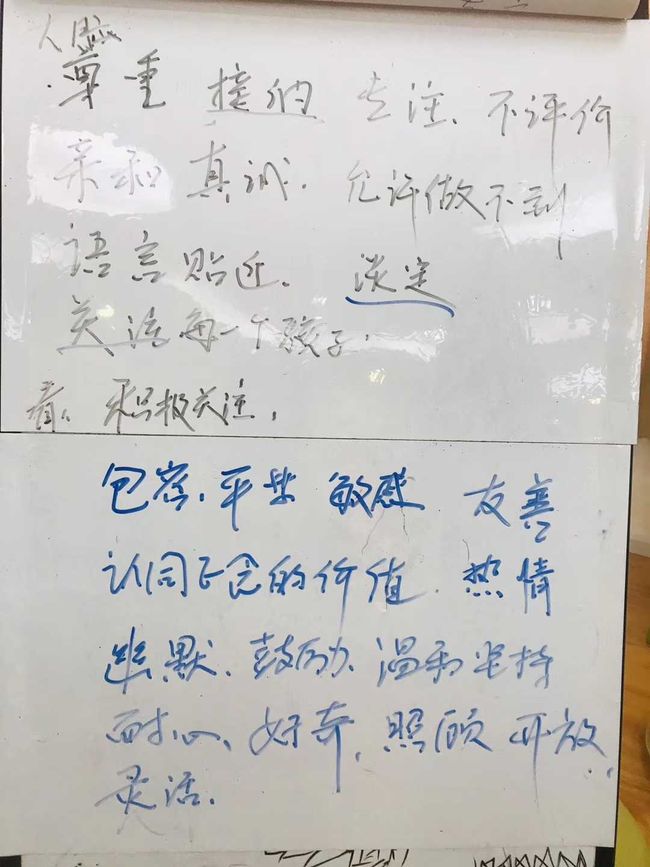 人脸
尊重 接纳 专注、不评价
亲和 真诚、允许做不到
语言贴近、 淡定
关注每一个孩子.
看、积极关注,
包容、平等 敏感 友善
认同正念的价值、热情
幽默、鼓励、温和坚持
耐心、好奇, 照顾 开放、
灵活.